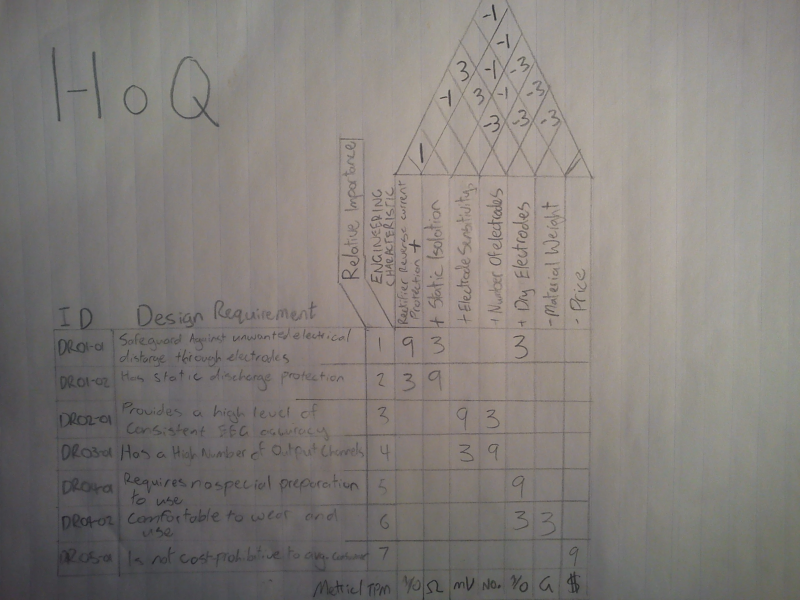 HoQ
-1
-1
3 -1 -3
-1 3 -1 -3
-3 -3 -3
1
Relative Importance
ENGINEERING CHARACTERISTIC
Rectifier Reverse current Protection +
+ Static Isolation
+ Electrode Sensitivity
+ Number Of electrodes
+ Dry Electrodes
- Material Weight
- Price
ID Design Requirement
DR01-01 Safeguard Against unwanted electrical 1 9 3 3
through electrodes
DR01-02 Has static discharge protection 2 3 9
DR02-01 Provides a high level of 3 9 3
consistent EEG accuracy
DR03-01 Has a High Number of Output Channels 4 3 9
DR04-01 Requires no special preparation 5 9
to use
DR04-02 Comfortable to wear and 6 3 3
use
DR05-01 Is not cost prohibitive to any 7 9
Metric/TPM % Ω mV No. % G $